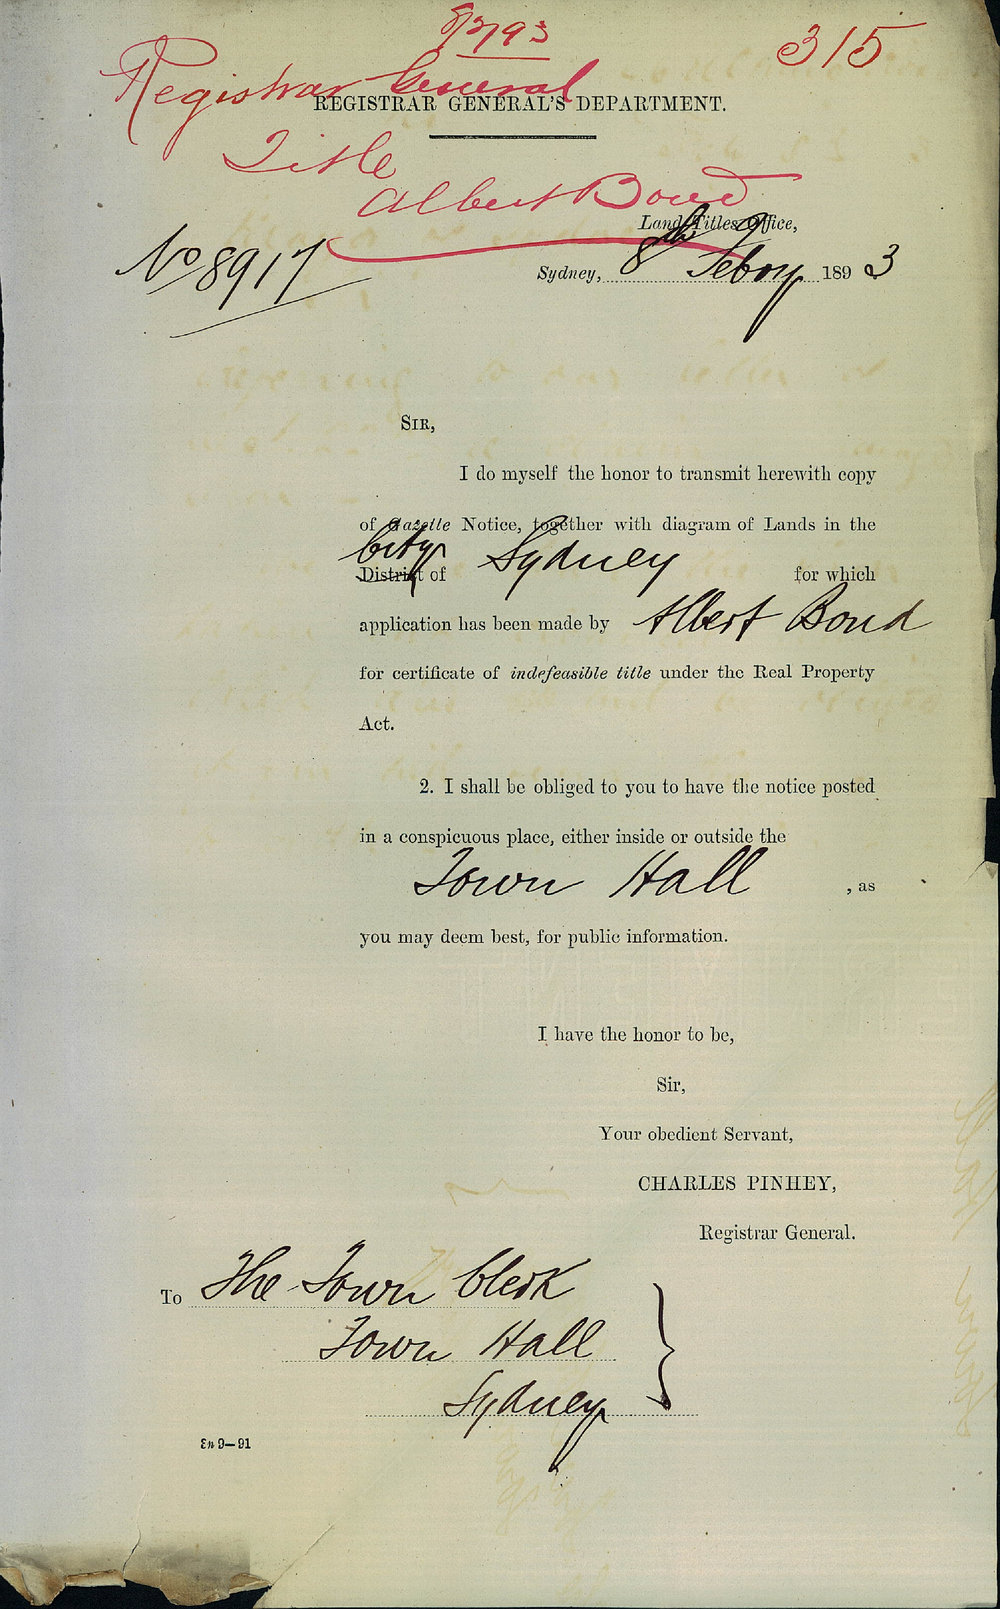 8/2/93
315
Registrar General
REGISTRAR GENERAL'S DEPARTMENT.
Title
Albert Bond
Land Titles Office,
No 8917
Sydney, 8th Febry 1893
SIR,
I do myself the honor to transmit herewith copy
of Gazette Notice, together with diagram of Lands in the
City
District of Sydney for which
application has been made by Albert Bond
for certificate of indefeasible title under the Real Property
Act.
2. I shall be obliged to you to have the notice posted
in a conspicuous place, either inside or outside the
Town Hall , as
you may deem best, for public information.
I have the honor to be,
Sir,
Your obedient Servant,
CHARLES PINHEY,
Registrar General.
To The Town Clerk
Town Hall
Sydney
En 9—91